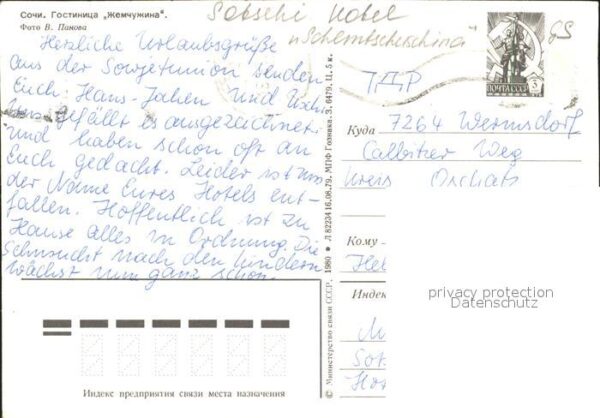 Сочи. Гостиница „Жемчужина".
Фото В. Панова
Sotschi Hotel
"Schemtschuschina
Herzliche Urlaubsgrüße
aus der Sowjetunion senden
Euch: Hans-Jahen und
Uns gefällt es ausgezeichnet
und haben schon oft an
Euch gedacht. Leider ist uns
der Name Eures Hotels ent-
fallen. Hoffentlich ist zu
Hause alles in Ordnung. Die
Sehnsucht nach den Kindern
wächst nun ganz schön.
ПОЧТА СССР
ГДР
Куда 7264 Wermsdorf
Calbitzer Weg
Kreis Oschatz
Кому
Индек
privacy protection
Datenschutz
Индекс предприятия связи места назначения
© Министерство связи СССР. 1980 ● Л 82234 16.08.79. МПФ Гознака. З. 6479. Ц. 5 к.